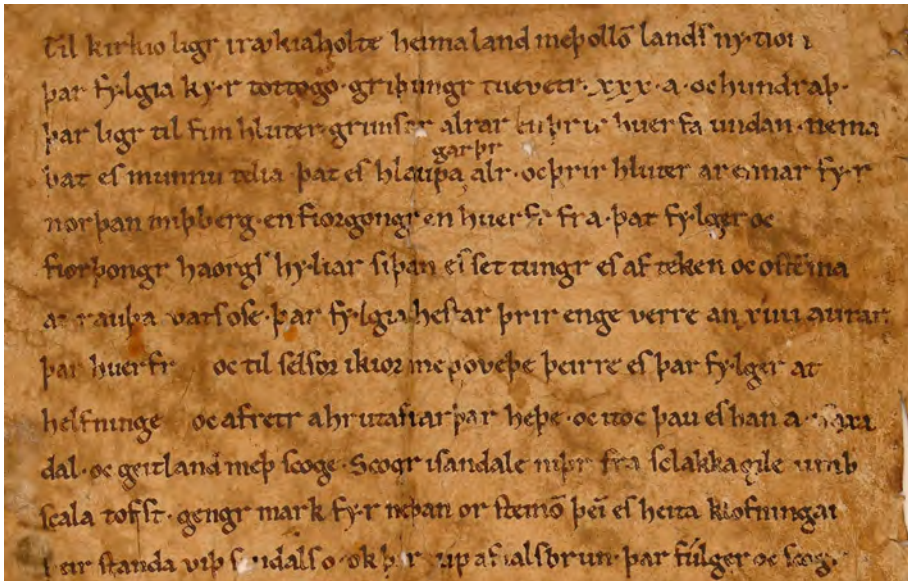 til kirkio ligr i raykiaholte heima land meþ ollō landſ ny·tiom
þar fy·lgia ky·r tottogo· griþungr tuevetr· xxx · a · oc hundraþ·
þar ligr til fim hluter· grimſ ar alrar huer fa undan · nema
þat eſ munnu telia · þat eſ hlaupa garþr alr · oc þrir hluter ar ennar fy·r
norþan miþberg · en fiorgongr en huerfr fra · þat fy·lger oc
fiorþongr haorgſ hy·liar ſiþan ſet tungr eſ af teken oc
at rauþa vatſ oſe · þar fy·lgia heſtar þrir enge verre an xiiii aurar·
þar huerfr oc til ſelfor i kior meþ oveþe þeirre eſ þar fy·lger at
helfninge oc afretr a hruta fiarþar heþe · oc itoc þau eſ han a ·
dal · oc geitland meþ ſcoge · Scogr i ſandale niþr fra ſclakka gile umb
ſcala toſſt · gengr mark fy·r neþan or ſteinō þeī eſ heita klofningar
þeir ſtanda viþ ſandalſ o · ok þar up a fialſbrun · þar fúlger oc ſcogr